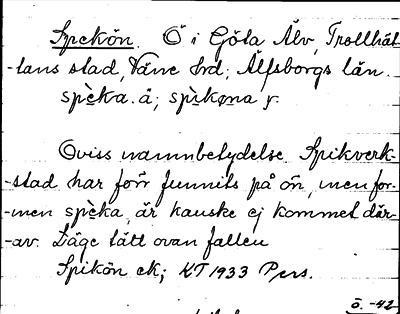 Spekön. Ö i Göta Älv, Trollhät-
-tans stad, Väne hd; Älfsborgs län.
spèka. å; spìkøna f.
Oviss namnbetydelse. Spikverk-
-stad har förr funnits på ön, men for-
-men spèka, är kanske ej kommet där-
-av. Läge tätt ovan fallen
Spikön ek; KT 1933 Pers.
ö. -42